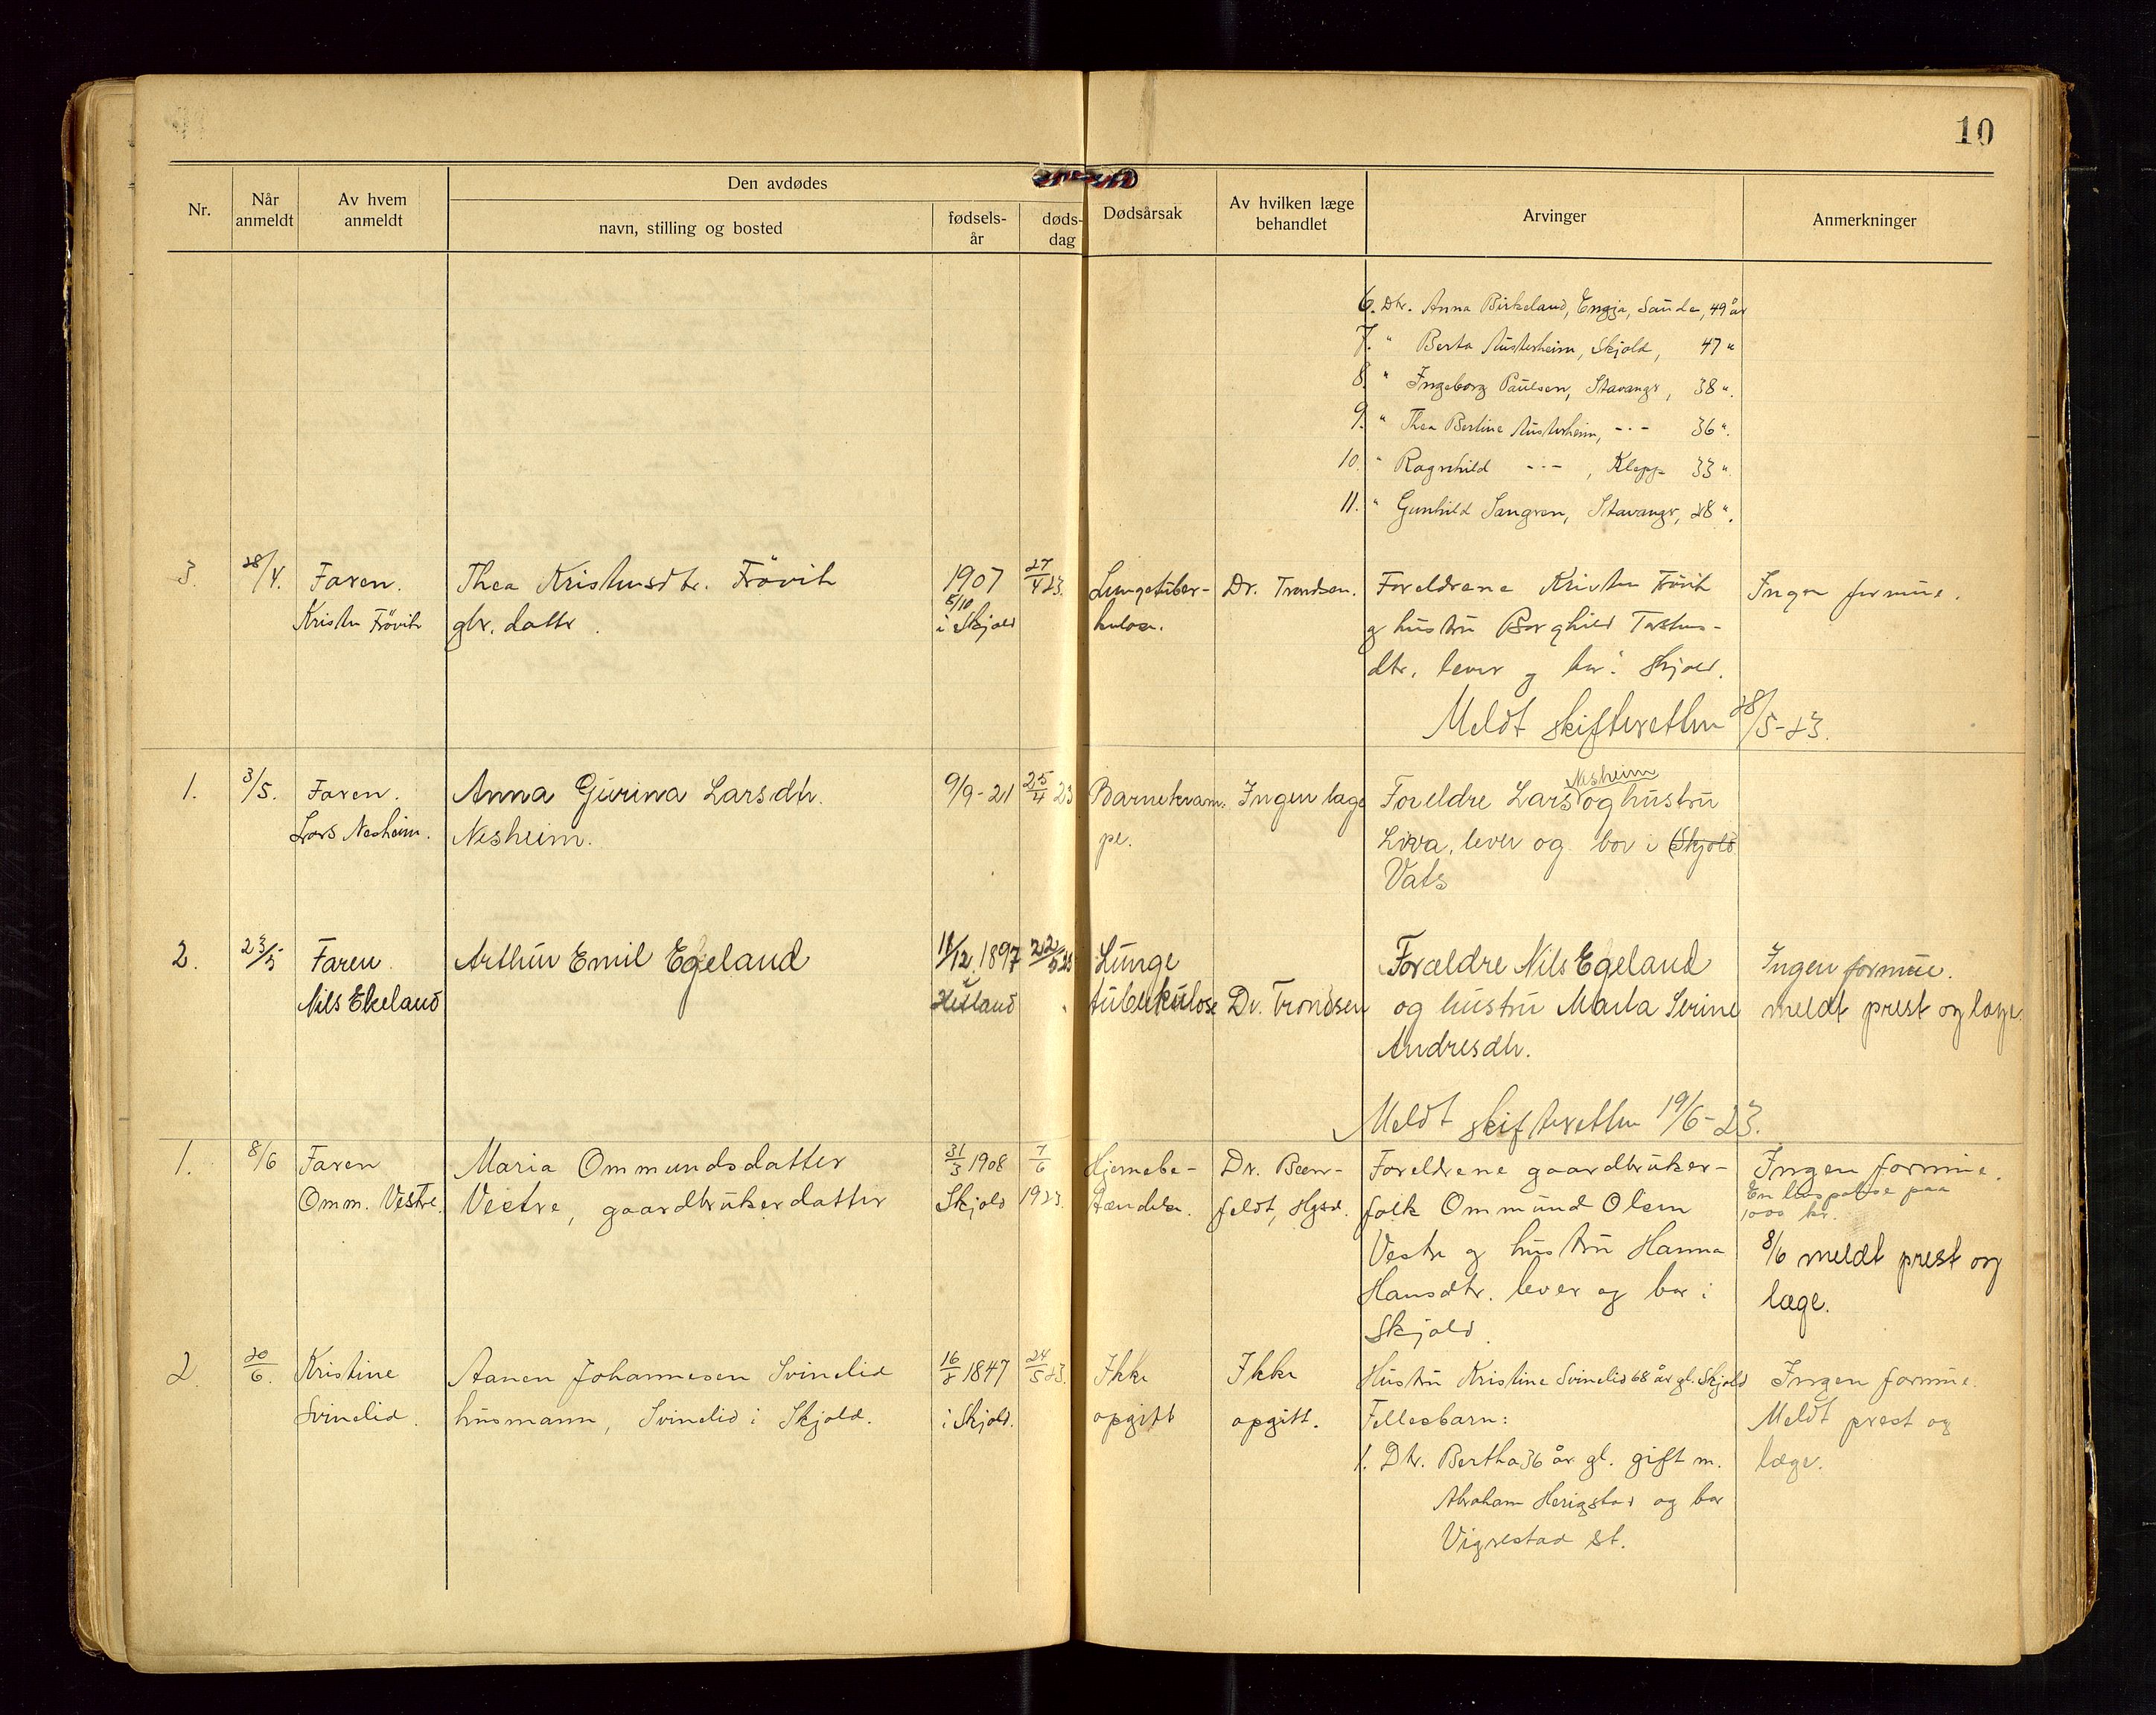 10
Nr.
Når anmeldt
Av hvem anmeldt
Den avdødes
navn, stilling og bosted
fødsels-år
døds-dag
Dødsårsak
Av hvilken læge behandlet
Arvinger
Anmerkninger
6. Dtr. Anna Birkeland, Engja, Saude, 49 år
7. " Berta Austerheim, Skjold, 47 "
8. " Ingeborg Paulsen, Stavangr, 38 ".
9. " Thea Bertine Austerheim, -·- 36 ".
10. " Ragnhild -·-, Klepp 33 ".
11. " Gunhild Sangren, Stavangr, 28 ".
3. 28/4. Faren. Thea Kristensdtr. Frövik 1907 27/4 23. Lungetuber- Dr. Trondsen. Foreldrene Kristen Frövik Ingen formue.
Kristen Frövik gbr. dattr. 8/10 i Skjold kulose. og hustru Borghild Torstens-
dtr. lever og bor i Skjold.
Meldt skifteretten 28/5-23.
1. 3/5. Faren. Anna Gurina Larsdtr. 9/9-21 25/4 23 Barnekram- Ingen læge Foreldre Lars Nesheim og hustru
Lars Nesheim. Nesheim. pe. Liva, lever og bor i Skjold
Vats
2. 23/5 Faren Arthur Emil Egeland 11/12 1897 22/5 23 Lunge Forældre Nils Egeland Ingen formue.
Nils Ekeland i Hetland tuberkulose Dr. Trondsen og hustru Marta Serine meldt prest og læge.
Andresdtr.
Meldt skifteretten 19/6-23.
1. 8/6 Faren Maria Ommundsdatter 31/3 1908 7/6 Hjernebe- Dr. Beer- Foreldrene gaardbruker- Ingen formue.
Omm. Vestre. Vestre, gaardbrukerdatter Skjold 1923. tændelse. feldt, Hgsd. folk Ommund Olsen En livspolise paa 1000 kr.
Vestre og hustru Hanna 8/6 meldt prest og
Hansdtr. lever og bor i læge.
Skjold.
2. 20/6. Kristine Aanen Johannesen Svinelid 16/8 1847 24/5 23. Ikke Ikke Hustru Kristine Svinelid 68 år gl. Skjold Ingen formue.
Svinelid. husmann, Svinelid i Skjold. i Skjold. opgitt opgitt. Fellesbarn: Meldt prest og
1. Dtr. Bertha 36 år gl. gift m. læge.
Abraham Herigstad og bor
Vigrestad st.